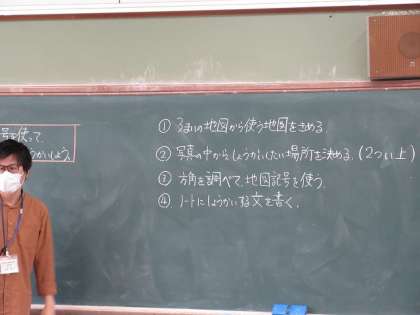 号を使って、
うかいしよう。
① 3まいの地図から使う地図をきめる。
② 写真の中からしょうかいしたい場所を決める。(2つい上)
③ 方角を調べて、地図記号を使う。
④ ノートにしょうかいする文を書く。